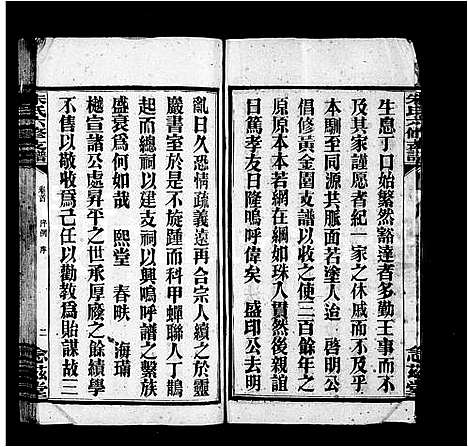 生息丁口始繁然豁達者多勤王事而不
及其家謹愿者紀一家之休戚而不及乎
本馴至同源共脈面若塗人迨 啓明公
倡修黃金園支譜以收之使二百餘年之
原原本本若網在綱如珠入貫然後親誼
日篤孝友日隆嗚呼偉矣 盛印公去明
亂日久恐情疏義遠再合宗人續之於靈
巖書室於是不旋踵而科甲蟬聯人丁鵲
起而總祠以建支祠以興嗚呼譜之繫族
盛衰爲何如哉 熙堂 春畉 海瑞
樾宣諸公處昇平之世承厚廢之餘績學
不售以敬收爲己任以勸教爲貽謀故三
卷首 序例 序
二